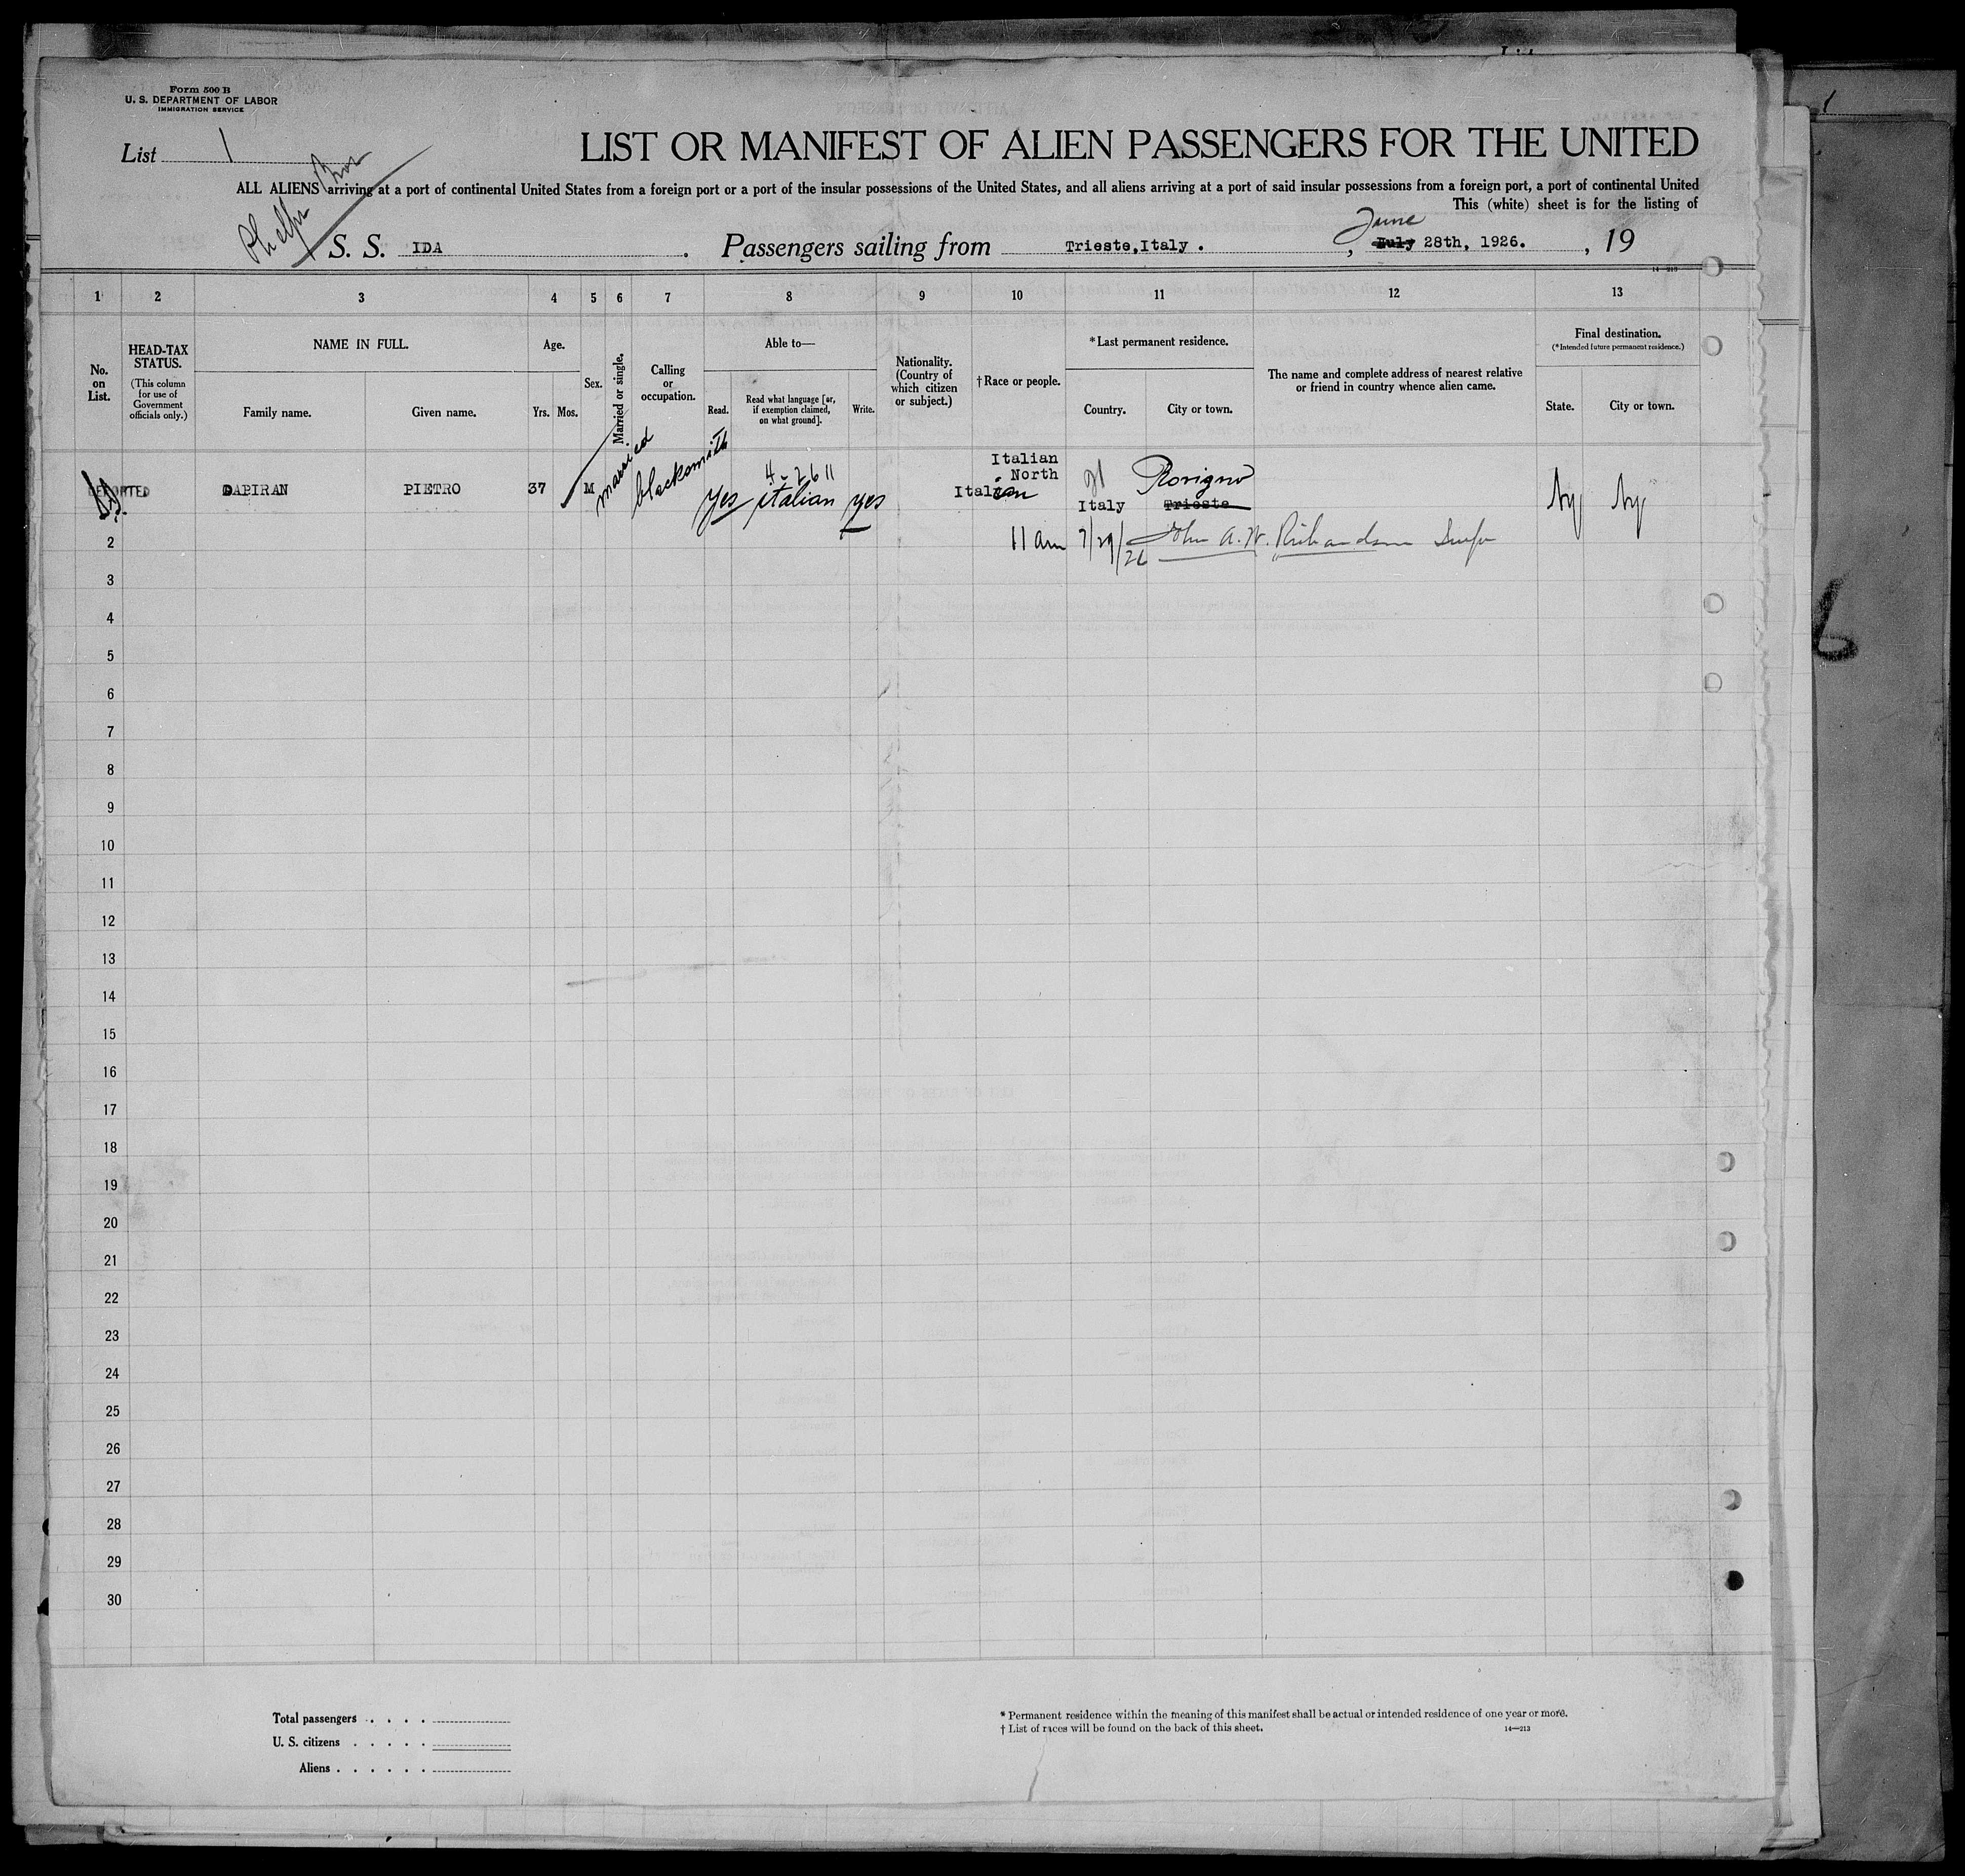 Form 500 B
U. S. DEPARTMENT OF LABOR
IMMIGRATION SERVICE
List 1
LIST OR MANIFEST OF ALIEN PASSENGERS FOR THE UNITED
ALL ALIENS arriving at a port of continental United States from a foreign port or a port of the insular possessions of the United States, and all aliens arriving at a port of said insular possessions from a foreign port, a port of continental United
This (white) sheet is for the listing of
Phelps Bros
June
S. S. IDA . Passengers sailing from Trieste,Italy . , July 28th, 1926. , 19
14—213
1 2 3 4 5 6 7 8 9 10 11 12 13
No. on List.
HEAD-TAX STATUS.
(This column for use of Government officials only.)
NAME IN FULL.
Family name. Given name.
Age.
Yrs. Mos.
Sex.
Married or single.
Calling or occupation.
Able to—
Read. Read what language [or, if exemption claimed, on what ground]. Write.
Nationality. (Country of which citizen or subject.)
†Race or people.
*Last permanent residence.
Country. City or town.
The name and complete address of nearest relative or friend in country whence alien came.
Final destination.
(*Intended future permanent residence.)
State. City or town.
DEPORTED DAPIRAN PIETRO 37 M married blacksmith Yes Italian yes Italian Italian North Italy Rovigno Trieste Ny Ny
4-2611
2 11 am 7/29/26 John A. W. Richardson
3
4
5
6
7
8
9
10
11
12
13
14
15
16
17
18
19
20
21
22
23
24
25
26
27
28
29
30
Total passengers . . . .
U. S. citizens . . . . .
Aliens . . . . . .
* Permanent residence within the meaning of this manifest shall be actual or intended residence of one year or more.
† List of races will be found on the back of this sheet.
14—213
1
6